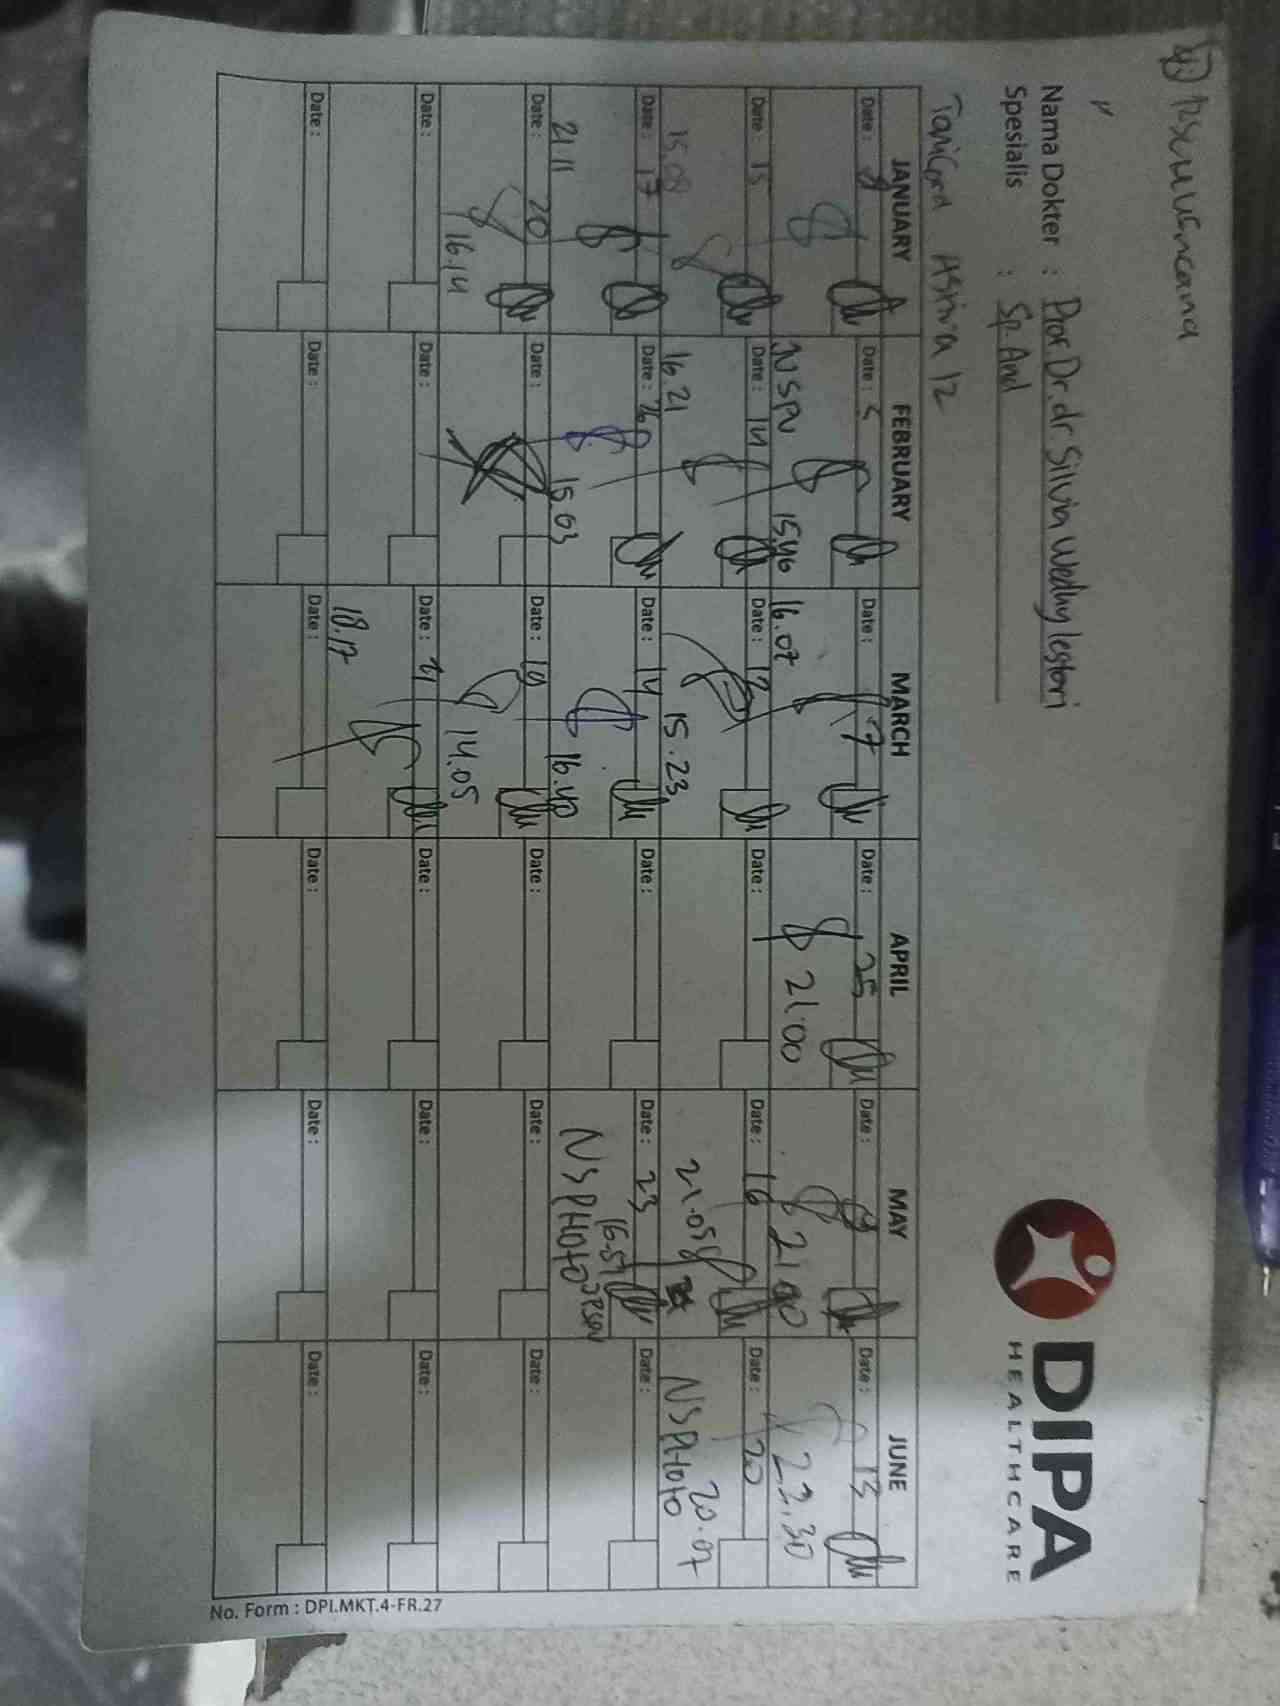 DIPA
HEALTHCARE
Nama Dokter : Prof. Dr. dr. Silvia Wedhy Lestari
Spesialis : Sp. And
12
JANUARY FEBRUARY MARCH APRIL MAY JUNE
Date : 8 Date : 5 Date : 17 Date : 25 Date : 9 Date : 13
NSPV 15.46 16.07 21.00 21.00 22.30
Date : 15 Date : 14 Date : 12 Date : Date : 16 Date : 20
15.08 16.21 15.23 21.05 NSPHOTO 20.07
Date : 17 Date : 26 Date : 14 Date : Date : 23 Date :
21.11 15.03 16.40 16.57 NSPHOTO
Date : 20 Date : Date : 19 Date : Date : Date :
16.14 14.05
Date : Date : Date : 21 Date : Date : Date :
18.17
Date : Date : Date : Date : Date : Date :
No. Form : DPI.MKT.4-FR.27